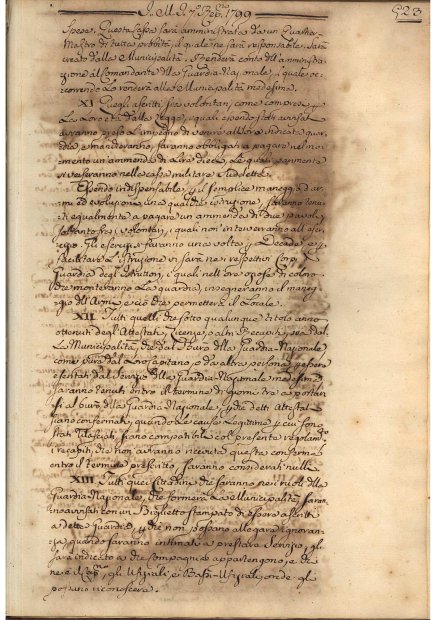 1799
523
Spese. Questa Cassa sarà amministrata da un Quartier
Mastro di tutta probità, il quale ne sarà responsabile. Sarà
creato dalla Municipalità, e renderà conto dell'amministra-
zione al Comandante della Guardia Nazionale, il quale oc-
correndo lo renderà alla Municipalità medesima.
XI Quegli ascritti, sia volontari, come compresi
La Loro età dalla Legge, i quali essendosi
avranno preso l'impegno di venire all'ora indicata
e mancheranno, saranno obbligati a pagare nel mo-
mento un'ammenda di Lire dieci, Le quali
si verseranno nella cassa militare suddetta.
Essendo indispensabile il semplice maneggio d'ar-
mi ed evoluzioni, una qualche istruzione, saranno tenu-
ti egualmente a pagare un'ammenda di due pavoli,
soltanto i volontari, i quali non interverranno all'
Gli esercizi si faranno una volta Decade, e
facilitare L'Istruzione vi sarà nei respettivi Corpi
Guardia degli Istruttori, i quali nell'ore oziose di coloro
che monteranno La guardia, insegneranno il maneg-
gio dell'Armi, e ciò che permetterà il Locale.
XII Tutti quelli, che sotto qualunque titolo anno
ottenuti degli Attestati, Licenze, o altri Recapiti, sia dal-
La Municipalità, che dal Burò della Guardia Nazionale
come pure dal da altra persona,
esentati dal Servizio della Guardia Nazionale medesima,
saranno tenuti entro il termine di giorni tre a portar-
si al burò della Guardia Nazionale, che detti Attestati
siano confermati, quando Le cause Legittime cui sono
stati rilasciati, siano compatibili col presente regolamto
i recapiti, che non avranno ricevuta questa conferma
entro il termine prescritto, saranno considerati nulli
XIII Tutti quei Cittadini che saranno nei ruoli della
Guardia Nazionale, che formerà La Municipalità, saran-
no avvisati con un Biglietto stampato di essere ascritti
a detta Guardia, che non possano allegare ignoran-
za quando saranno intimati a prestare Servizio,
sarà indicato a che compagnia appartengono, e
nere il gli Uffiziali, ei Bassi-Uffiziali, onde gli
possano riconoscere.